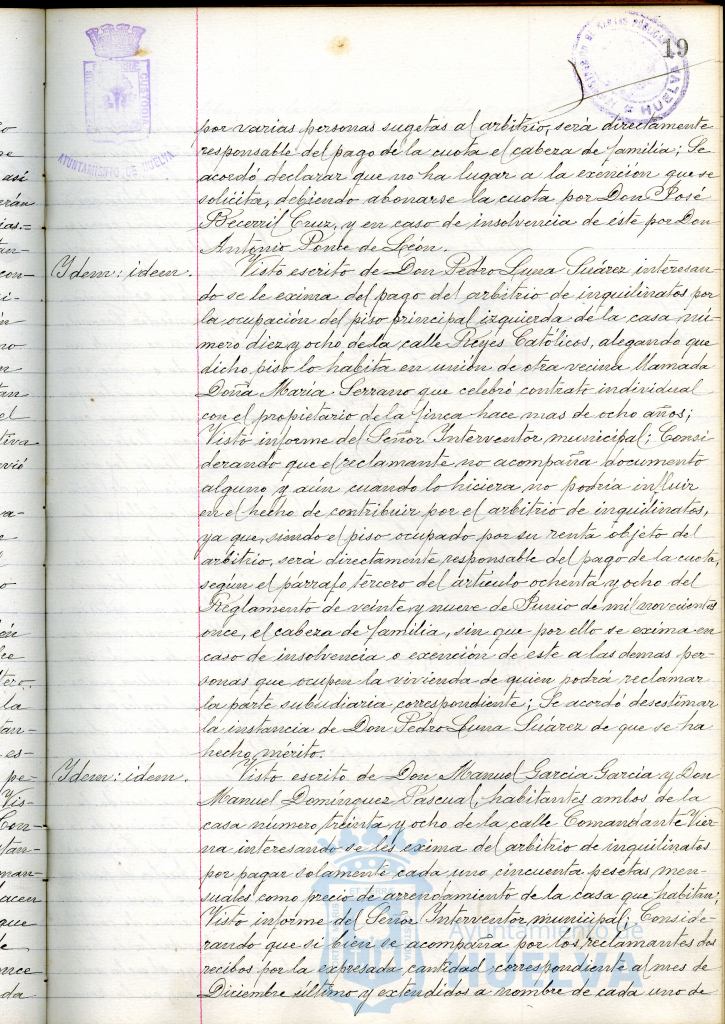 19
AYUNTAMIENTO DE HUELVA
HUELVA
por varias personas sugetas al arbitrio, será directamente
responsable del pago de la cuota el cabeza de familia; Se
acordó declarar que no ha lugar a la exención que se
solicita, debiendo abonarse la cuota por Don José
Becerril Cruz, y en caso de insolvencia de este por Don
Antonio Ponce de León.
Idem: idem.
Visto escrito de Don Pedro Luna Suárez interesan-
do se le exima del pago del arbitrio de inquilinatos por
la ocupación del piso principal izquierda de la casa nú-
mero diez y ocho de la calle Reyes Católicos, alegando que
dicho piso lo habita en unión de otra vecina llamada
Doña María Serrano que celebró contrato individual
con el propietario de la finca hace mas de ocho años;
Visto informe del Señor Interventor municipal; Consi-
derando que el reclamante no acompaña documento
alguno y aún cuando lo hiciera no podría influir
en el hecho de contribuir por el arbitrio de inquilinatos,
ya que, siendo el piso ocupado por su renta objeto del
arbitrio, será directamente responsable del pago de la cuota,
según el párrafo tercero del artículo ochenta y ocho del
Reglamento de veinte y nueve de Junio de mil novecientos
once, el cabeza de familia, sin que por ello se exima en
caso de insolvencia o exención de este a las demas per-
sonas que ocupen la vivienda de quien podrá reclamar
la parte subsidiaria correspondiente; Se acordó desestimar
la instancia de Don Pedro Luna Suárez de que se ha
hecho mérito.
Idem: idem.
Visto escrito de Don Manuel García García y Don
Manuel Domínguez Pascual, habitantes ambos de la
casa número treinta y ocho de la calle Comandante Vier-
na interesando se les exima del arbitrio de inquilinatos
por pagar solamente cada uno cincuenta pesetas men-
suales como precio de arrendamiento de la casa que habitan;
Visto informe del Señor Interventor municipal; Conside-
rando que si bien se acompaña por los reclamantes dos
recibos por la expresada cantidad correspondiente al mes de
Diciembre último y extendidos a nombre de cada uno de
Ayuntamiento de
HUELVA